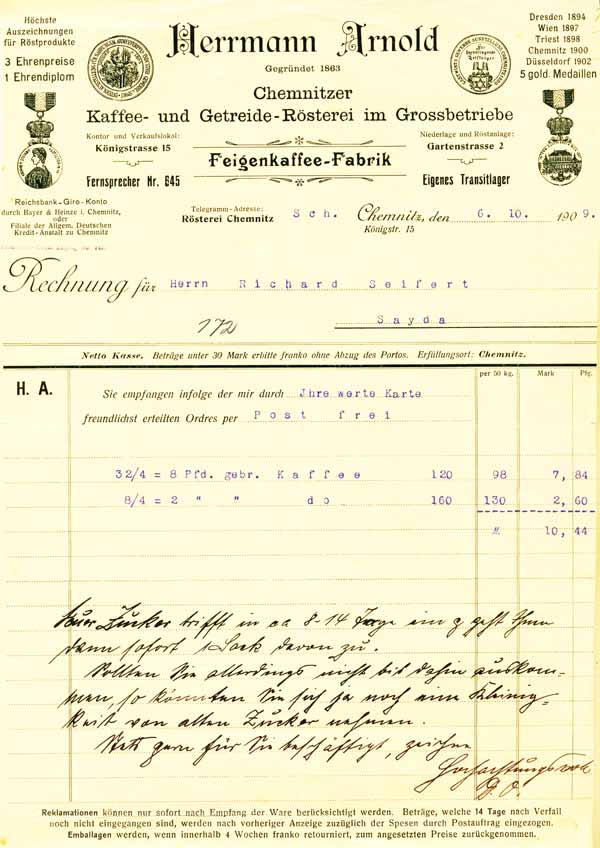 Höchste
Auszeichnungen
für Röstprodukte
3 Ehrenpreise
1 Ehrendiplom
Herrmann Arnold
Gegründet 1863
Chemnitzer
Kaffee- und Getreide-Rösterei im Grossbetriebe
Dresden 1894
Wien 1897
Triest 1898
Chemnitz 1900
Düsseldorf 1902
5 gold. Medaillen
Kontor und Verkaufslokal:
Königstrasse 15
Fernsprecher Nr. 645
Feigenkaffee-Fabrik
Niederlage und Röstanlage:
Gartenstrasse 2
Eigenes Transitlager
Reichsbank-Giro-Konto
durch Bayer & Heinze i. Chemnitz,
oder
Filiale der Allgem. Deutschen
Kredit-Anstalt zu Chemnitz
Telegramm-Adresse:
Rösterei Chemnitz
Sch. Chemnitz, den 6. 10. 1909.
Königstr. 15
Rechnung für Herrn Richard Seifert
172 Sayda
Netto Kasse. Beträge unter 30 Mark erbitte franko ohne Abzug des Portos. Erfüllungsort: Chemnitz.
H. A. per 50 kg. Mark Pfg.
Sie empfangen infolge der mir durch Jhre werte Karte
freundlichst erteilten Ordres per Post frei
32/4 = 8 Pfd. gebr. Kaffee 120 98 7, 84
8/4 = 2 " " do 160 130 2, 60
10, 44
Zucker trifft in ca 8-14 Tage ein geht Ihnen
dann sofort 1 Sack davon zu.
Sollten Sie allerdings nicht bis dahin auskom-
men, so könnten Sie sich ja noch eine Kleinig-
keit von alten Zucker nehmen.
Stets gern für Sie beschäftigt, zeichne
Hochachtungsvoll
Reklamationen können nur sofort nach Empfang der Ware berücksichtigt werden. Beträge, welche 14 Tage nach Verfall
noch nicht eingegangen sind, werden nach vorheriger Anzeige zuzüglich der Spesen durch Postauftrag eingezogen.
Emballagen werden, wenn innerhalb 4 Wochen franko retourniert, zum angesetzten Preise zurückgenommen.